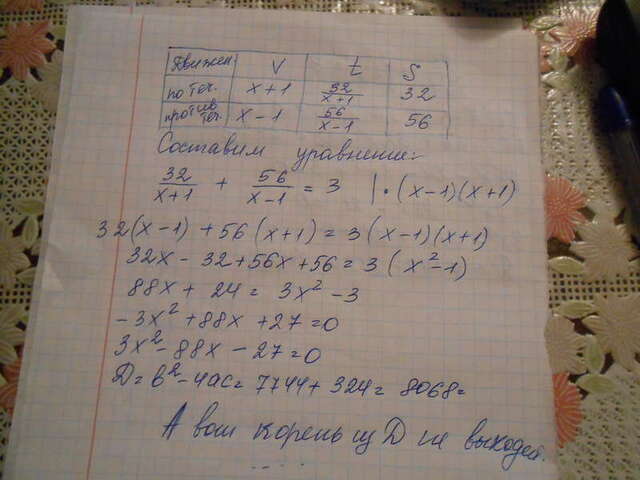 Движен. V t S
по теч. x+1 32/(x+1) 32
против теч. x-1 56/(x-1) 56
Составим уравнение:
32/(x+1) + 56/(x-1) = 3 |·(x-1)(x+1)
32(x-1)+56(x+1)=3(x-1)(x+1)
32x-32+56x+56=3(x²-1)
88x+24=3x²-3
-3x²+88x+27=0
3x²-88x-27=0
Д=в²-4ас=7744+324=8068=
А вот корень из Д не выходит.
....